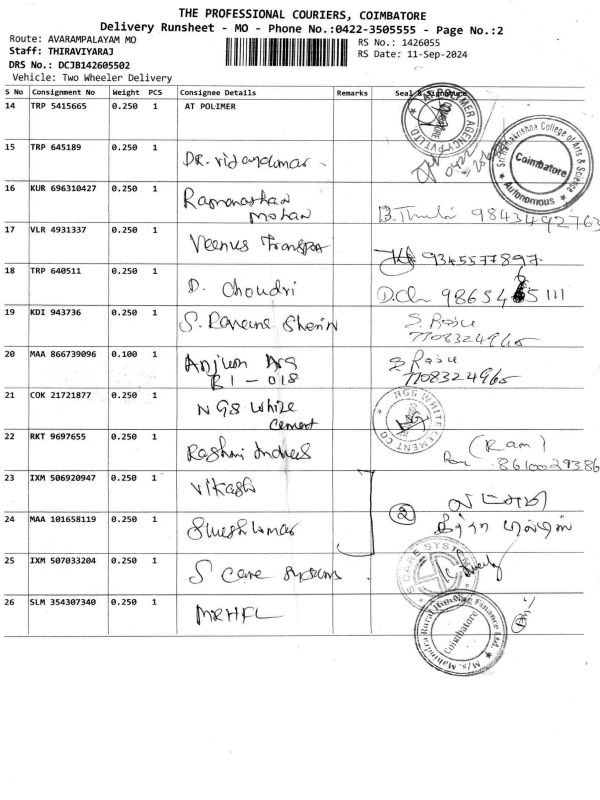 THE PROFESSIONAL COURIERS, COIMBATORE
Delivery Runsheet - MO - Phone No.:0422-3505555 - Page No.:2
Route: AVARAMPALAYAM MO
Staff: THIRAVIYARAJ
DRS No.: DCJB142605502
Vehicle: Two Wheeler Delivery
RS No.: 1426055
RS Date: 11-Sep-2024
S No Consignment No Weight PCS Consignee Details Remarks Seal & Signature
14 TRP 5415665 0.250 1 AT POLIMER
15 TRP 645189 0.250 1 DR. Vijayakumar
Sri Ramakrishna College of Arts & Science
Coimbatore
Autonomous
16 KUR 696310427 0.250 1 Ramanathan
mohan
17 VLR 4931337 0.250 1 Veenus Transport 9345577897
18 TRP 640511 0.250 1 D. Choudri
19 KDI 943736 0.250 1 S. Raveena Sherin S. Raju
7708324965
20 MAA 866739096 0.100 1 Anjum Ars
B1 - 018 S Raju
7708324965
21 COK 21721877 0.250 1 NGS White
cement NGS WHITE CEMENT CO
22 RKT 9697655 0.250 1 Rashmi Indus (Ram)
23 IXM 506920947 0.250 1 Vikash
24 MAA 101658119 0.250 1 Sureshkumar 2
25 IXM 507033204 0.250 1 S Care Systems S CARE SYSTEMS
26 SLM 354307340 0.250 1 MRHFL
M/s. Mahindra Rural Housing Finance Ltd.
Coimbatore